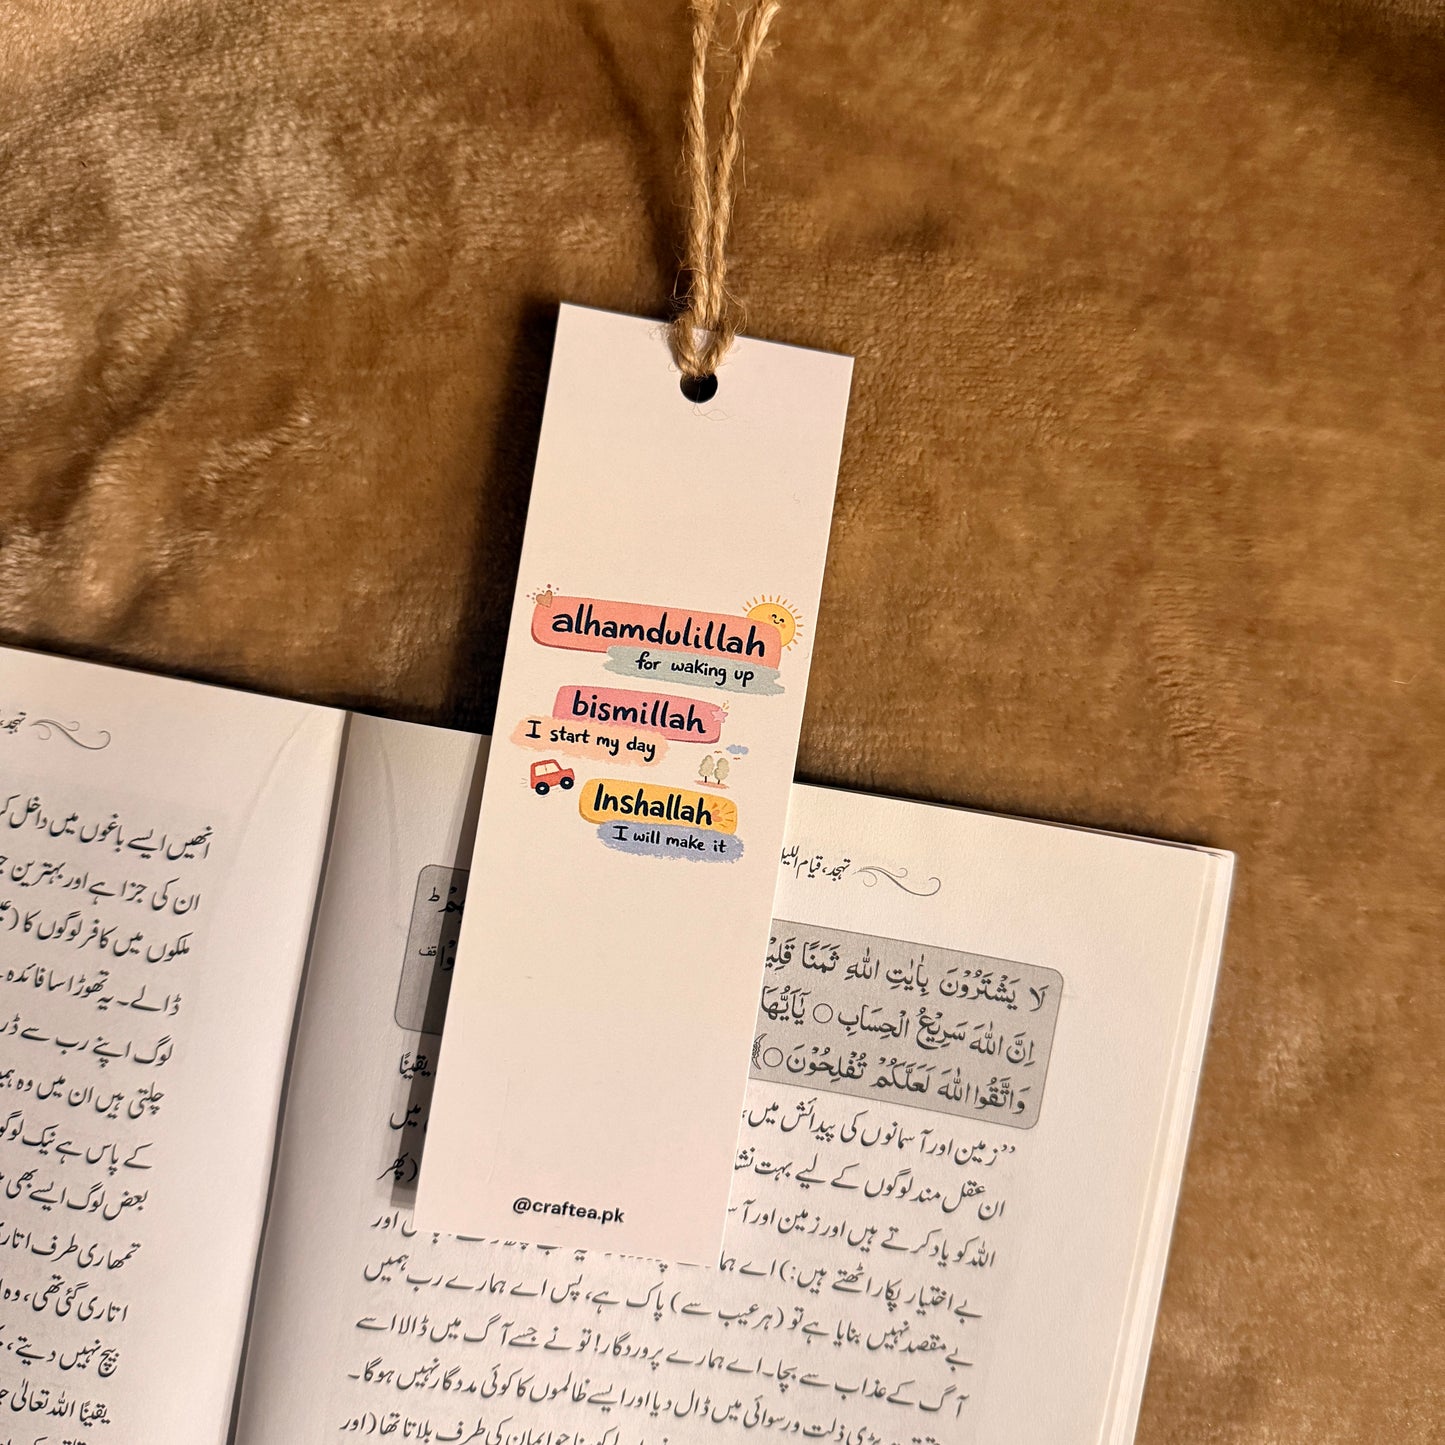 alhamdulillah
for waking up
bismillah
I start my day
Inshallah
I will make it
@craftea.pk
تہجد،
انھیں ایسے باغوں میں داخل
ان کی جزا ہے اور بہترین
ملکوں میں کافر لوگوں کا
ڈالے۔ یہ تھوڑا سا فائدہ
لوگ اپنے رب سے ڈر
چلتی ہیں ان میں وہ
کے پاس ہے نیک
بعض لوگ ایسے بھی
تمھاری طرف اتاری
اتاری گئی تھی، وہ
بیچ نہیں دیتے،
یقینًا اللہ تعالیٰ
تہجد، قیام اللیل
لَا يَشْتَرُوْنَ بِاٰيٰتِ اللّٰهِ ثَمَنًا
اِنَّ اللّٰهَ سَرِيْعُ الْحِسَابِ○ يٰٓاَيُّهَا
وَاتَّقُوا اللّٰهَ لَعَلَّكُمْ تُفْلِحُوْنَ○
”زمین اور آسمانوں کی پیدائش میں، یقینًا
ان عقل مند لوگوں کے لیے بہت میں
اللہ کو یاد کرتے ہیں اور زمین اور (پھر
بے اختیار پکار اٹھتے ہیں:) اے اور
بے مقصد نہیں بنایا ہے تو (ہر عیب سے) پاک ہے، پس اے ہمارے رب ہمیں
آگ کے عذاب سے بچا۔ اے ہمارے پروردگار! تو نے جسے آگ میں ڈالا اسے
بڑی ذلت و رسوائی میں ڈال دیا اور ایسے ظالموں کا کوئی مددگار نہیں ہوگا۔
جو ایمان کی طرف بلاتا تھا (اور